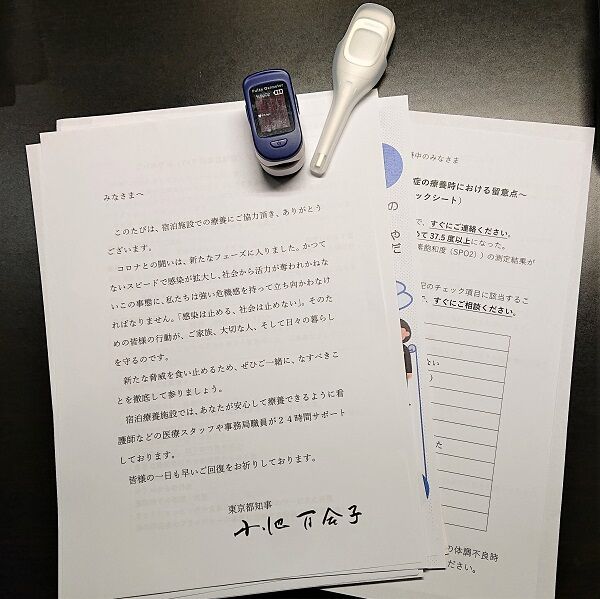 Pulse Oximeter
みなさまへ
このたびは、宿泊施設での療養にご協力頂き、ありがとう
ございます。
コロナとの闘いは、新たなフェーズに入りました。かつて
ないスピードで感染が拡大し、社会から活力が奪われかねな
いこの事態に、私たちは強い危機感を持って立ち向かわなけ
ればなりません。「感染は止める、社会は止めない」。そのた
めの皆様の行動が、ご家族、大切な人、そして日々の暮らし
を守るのです。
新たな脅威を食い止めるため、ぜひご一緒に、なすべきこ
とを徹底して参りましょう。
宿泊療養施設では、あなたが安心して療養できるように看
護師などの医療スタッフや事務局職員が２４時間サポート
しております。
皆様の一日も早いご回復をお祈りしております。
東京都知事
小池百合子
の
中のみなさま
症の療養時における留意点～
ックシート）
で、すぐにご連絡ください。
めて37.5度以上になった。
素飽和度（SPO2））の測定結果が
記のチェック項目に該当するこ
、すぐにご相談ください。
ない
）
り体調不良時
ください。